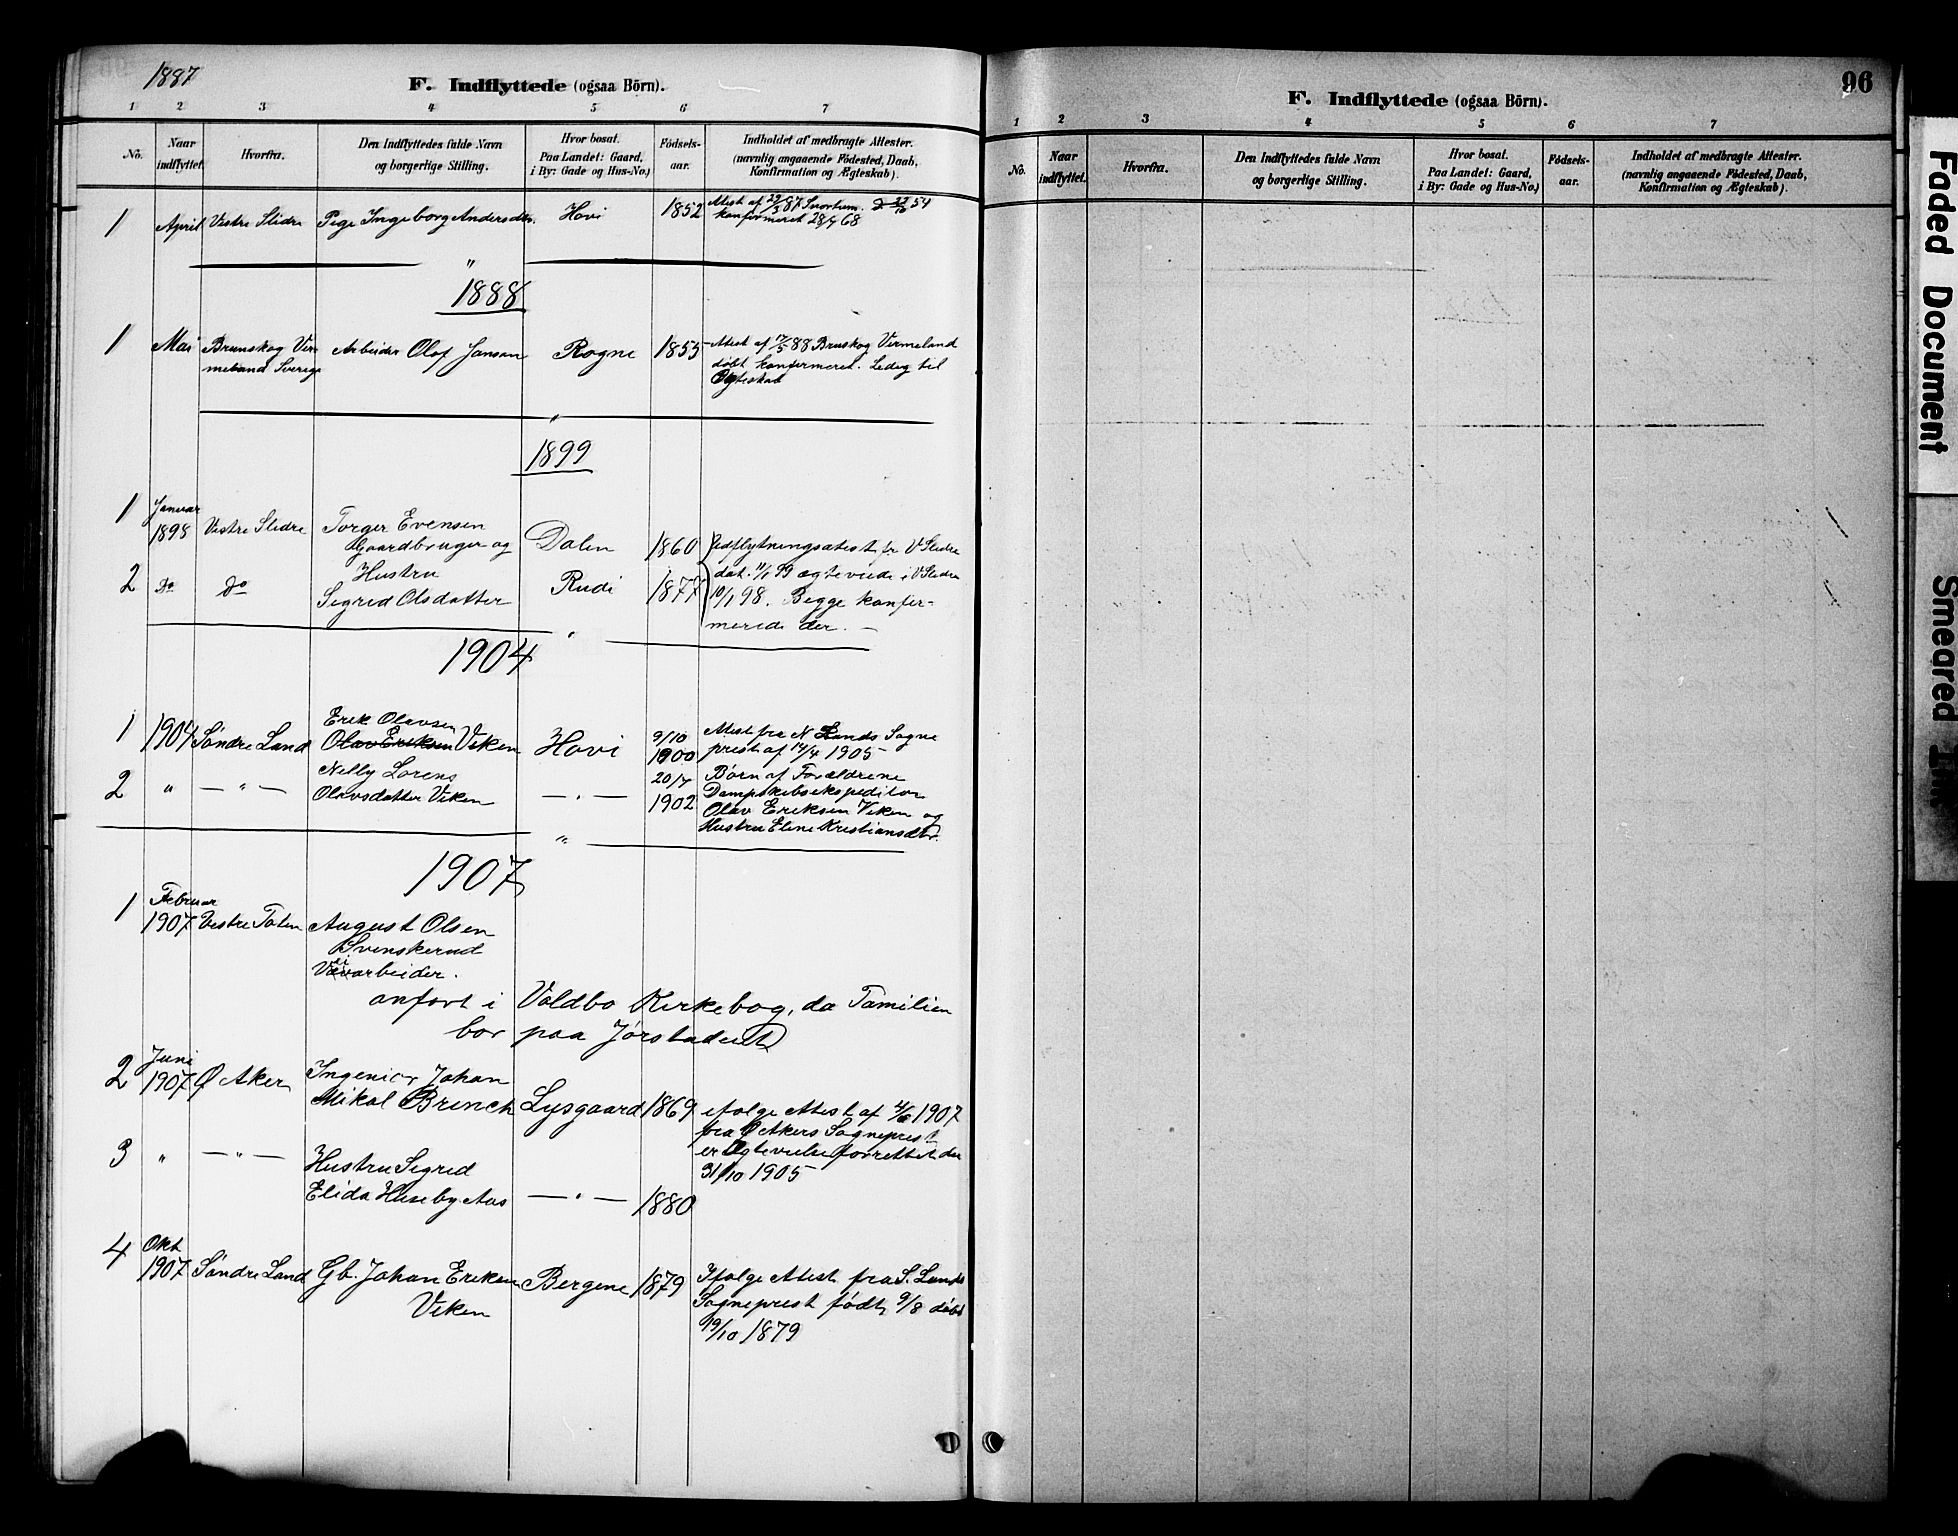 1887
F. Indflyttede (ogsaa Börn).
1 2 3 4 5 6 7
No. Naar indflyttet. Hvorfra. Den Indflyttedes fulde Navn og borgerlige Stilling. Hvor bosat. Paa Landet: Gaard, i By: Gade og Hus-No.) Födsels-aar. Indholdet af medbragte Attester. (navnlig angaaende Födested, Daab, Konfirmation og Ægteskab).
1 April Vestre Slidre Pige Ingeborg Andersdtr. Hovi 1852 Attest af 29/3 87
konfermeret 28/4 68
"
1888
1 Mai Brunskog Ver Arbeider Olof Janson Rogne 1855 Attest af 17/5 88 Bruskog Vermeland
meland Sverige døbt konfermeret. Ledig til
Ægteskab
"
1899
1 Januar
1898 Vestre Slidre Torger Evensen
Gaardbruger og Dalen 1860 Udflytningsatest fr V Slidre
Hustru dat. 11/1 99 ægteviede i V Slidre
2 do do Sigrid Olsdatter Rudi 1877 10/1 98. Begge konfer-
merede der. —
"
1904
1 1904 Søndre Land Erik Olavsen
Olav Eriksen Viken Hovi 9/10 1900 Atest fra N Lands Sogne
prest af 14/4 1905
2 " — " — Nelly Lorens
Olavsdatter Viken — " — 20/7 1902 Børn af Forældrene
Dampskibsekspeditør
Olav Eriksen Viken og
Hustru Eline Kristiansdtr.
"
1907
1 Februar
1907 Vestre Toten August Olsen
Svenskerud
Veiarbeider.
anført i Voldbo Kirkebog, da Familien
bor paa Jørstadeut
2 Juni
1907 Ø Aker Ingeniør Johan
Mikal Brinch Lysgaard 1869 ifølge Attest af 4/6 1907
fra Ø Akers Sogneprest
3 " — " — Hustru Sigrid er Ægtevielse forrettet der
31/10 1905
Elida Huseby Aas — " — 1880
4 Okt
1907 Søndre Land Gb. Johan Eriksen Bergene 1879 Ifølge Atest fra S. Lands
Viken Sogneprest født 9/8 døbt
19/10 1879
96
F. Indflyttede (ogsaa Börn).
1 2 3 4 5 6 7
No. Naar indflyttet. Hvorfra. Den Indflyttedes fulde Navn og borgerlige Stilling. Hvor bosat. Paa Landet: Gaard, i By: Gade og Hus-No.) Födsels-aar. Indholdet af medbragte Attester. (navnlig angaaende Födested, Daab, Konfirmation og Ægteskab).
Faded Document
Smeared Ink